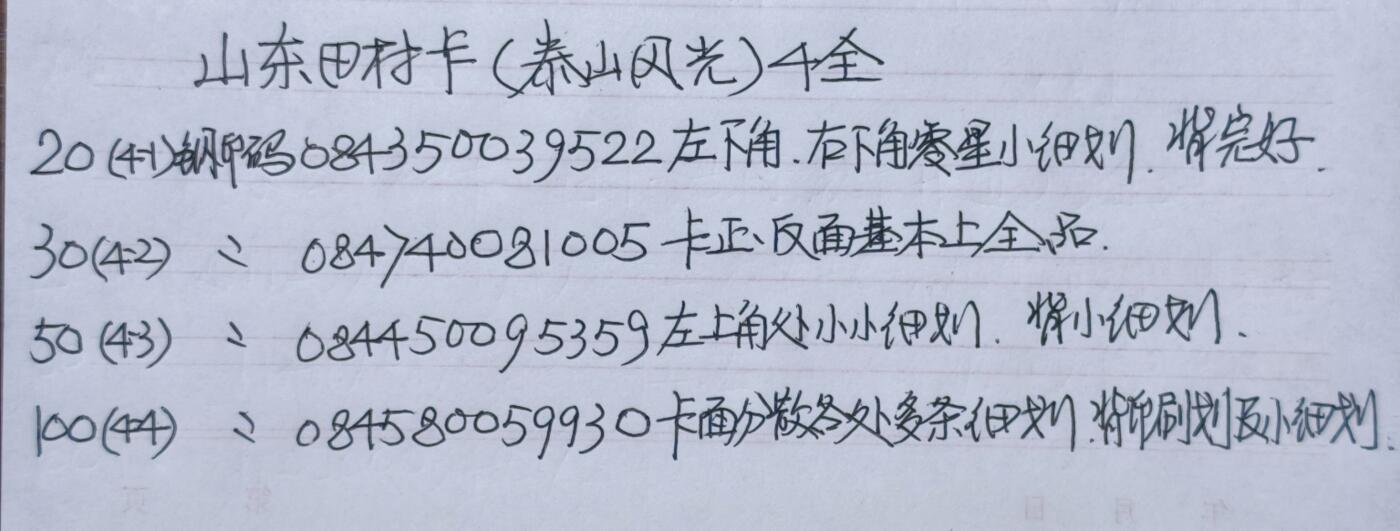 山东田村卡(泰山风光)4全
20(4-1)钢印码084350039522左下角.右下角零星小细划.背完好.
30(4-2) 〃 084740081005卡正、反面基本上全品.
50(4-3) 〃 084450095359左上角处小小细划.背小细划.
100(4-4) 〃 084580059930卡面分散各处多条细划.背印刷划及小细划.
第 页
年 月 日